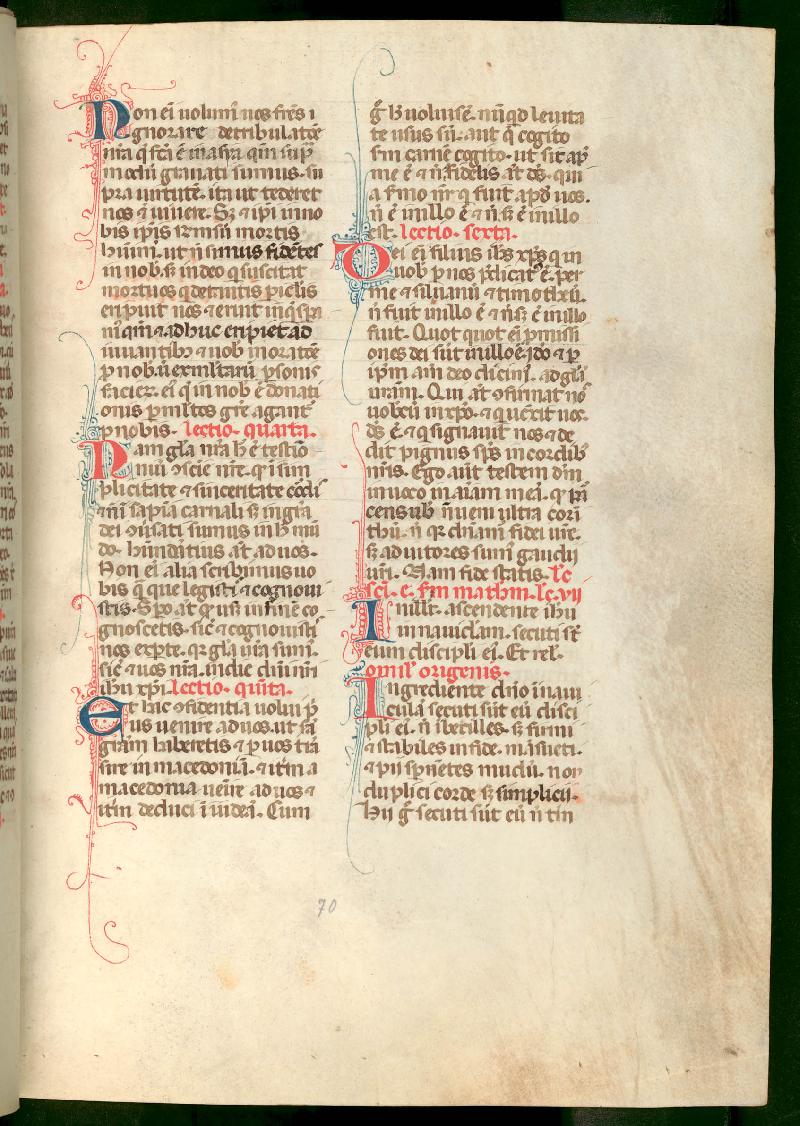 Non eī uolum᷒ uos fr̄es i
gnorare de tribulatōe
nr̄a q̄ fc̄a ē in asya qm̄ sup̄
modū grauati sumus su
pra uirtutē. ita ut tederet
nos ⁊ uiuere. Sꝫ ⁊ ipi in no
bis ip̄is r̄m̄sū mortis
hūim᷒. ut n̄ simus fidētes
in nob̄. sꝫ in deo q̄ suscitat
mortuos q̄ de tantis piclis
eripuit nos ⁊ eruit in q̄ spa
m᷒ qm̄ ⁊ adhuc eripiet ad
iuuantibꝫ ⁊ uob̄ in oratōe
ꝓ nob̄. ū ex mltarū ꝑsonis
facieꝝ. ei᷒ q̄ in nob̄ ē donati
onis ꝑ mltos gr̄e agant᷒
ꝓ nobis. lectio. quarta.
Nam gl̄a nr̄a h̄ ē testīo
niū ꝯscīe nr̄e. q̄ in sim
plicitate ⁊ sinceritate dei
⁊ n̄ ī sapīa carnali sꝫ in gr̄a
dei ꝯuersati sumus in h̄ mū
do. hūndātius āt ad uos.
Non eī alia scribimus uo
bis q̄ que legisti ⁊ cognoui
stis. Spo āt q̄ usꝫ in finē co
gnoscetis. sic̄ ⁊ cognouisti
nos ex ꝑte. qꝛ gl̄a ur̄a sum᷒.
sic̄ ⁊ uos nr̄a. in die dn̄i nr̄i
ih̄u xp̄i. lectio. quīta.
Et hac ꝯfidentia uolui p̄
us uenire ad uos. ut sc̄d̄am
grām haberetis ⁊ ꝑ uos trā
sire in macedoniā. ⁊ itm̄ a
macedonia uēire ad uos ⁊
itm̄ deduci ī iudeā. Cum
g̊ h̄ uoluisē. nūqd leuita
te usus sū. aut q̄ cogito
scm̄ carnē cogito. ut sit ap̄
me ē ⁊ n̄. fidelis āt d̄s. qui
a s̄mo nr̄ q̄ fuit apd̄ uos.
n̄ ē in illo ē ⁊ n̄. sꝫ ē in illo
est. lectio. sexta.
Dei eī filius ih̄s xp̄s q in
uob̄ ꝑ nos p̄dicat᷒ ē. per
me ⁊ siluanū ⁊ timotheū.
n̄ fuit in illo ē ⁊ n̄. sꝫ ē in illo
fuit. Quot quot eī ꝓmissi
ones dei sūt in illo ē. ido ⁊ ꝑ
ip̄m am̄ deo dicim᷒. ad gl̄a
nr̄am. Qui āt ꝯfirmat nos
uobcū in xp̄o. ⁊ q uexit nos.
d̄s ē. ⁊ q signauit nos ⁊ de
dit pignus sp̄s in cordibꝫ
nr̄is. Ego aūt testem dm̄
inuoco in aīam meā. q̄ par
cens uob̄ n̄ ueni ultra corī
thū. n̄ qꝛ dn̄am᷒ fidei ur̄e.
sꝫ adiutores sum᷒ gaudii
ur̄i. Nam fide statis. Lc̄
sc̄i. e. s̄m math̄m. Lc̄. vii
In illt̄. ascendente ih̄u
in nauiclam. secuti st̄
eum discipli ei᷒. Et rel̄.
omīl᷒ origenis.
Ingrediente dn̄o ī naui
cula secuti sūt eū disci
pli ei᷒. n̄ ībecilles. sꝫ firmi
⁊ stabiles in fide. māsueti.
⁊ pii sꝑnētes mudū. non
duplici corde sꝫ simplici.
Hii g̊ secuti sūt eū n̄ tm̄
70